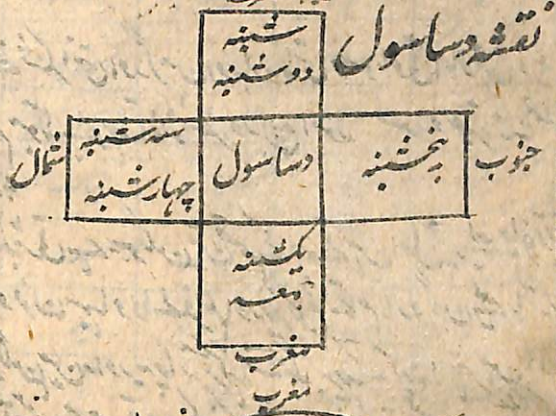 نقشه دساسول
شنبه
دوشنبه
جنوب
پنجشنبه
دساسول
سه شنبه
چهارشنبه
شمال
یکشنبه
جمعه
مغرب
مغرب